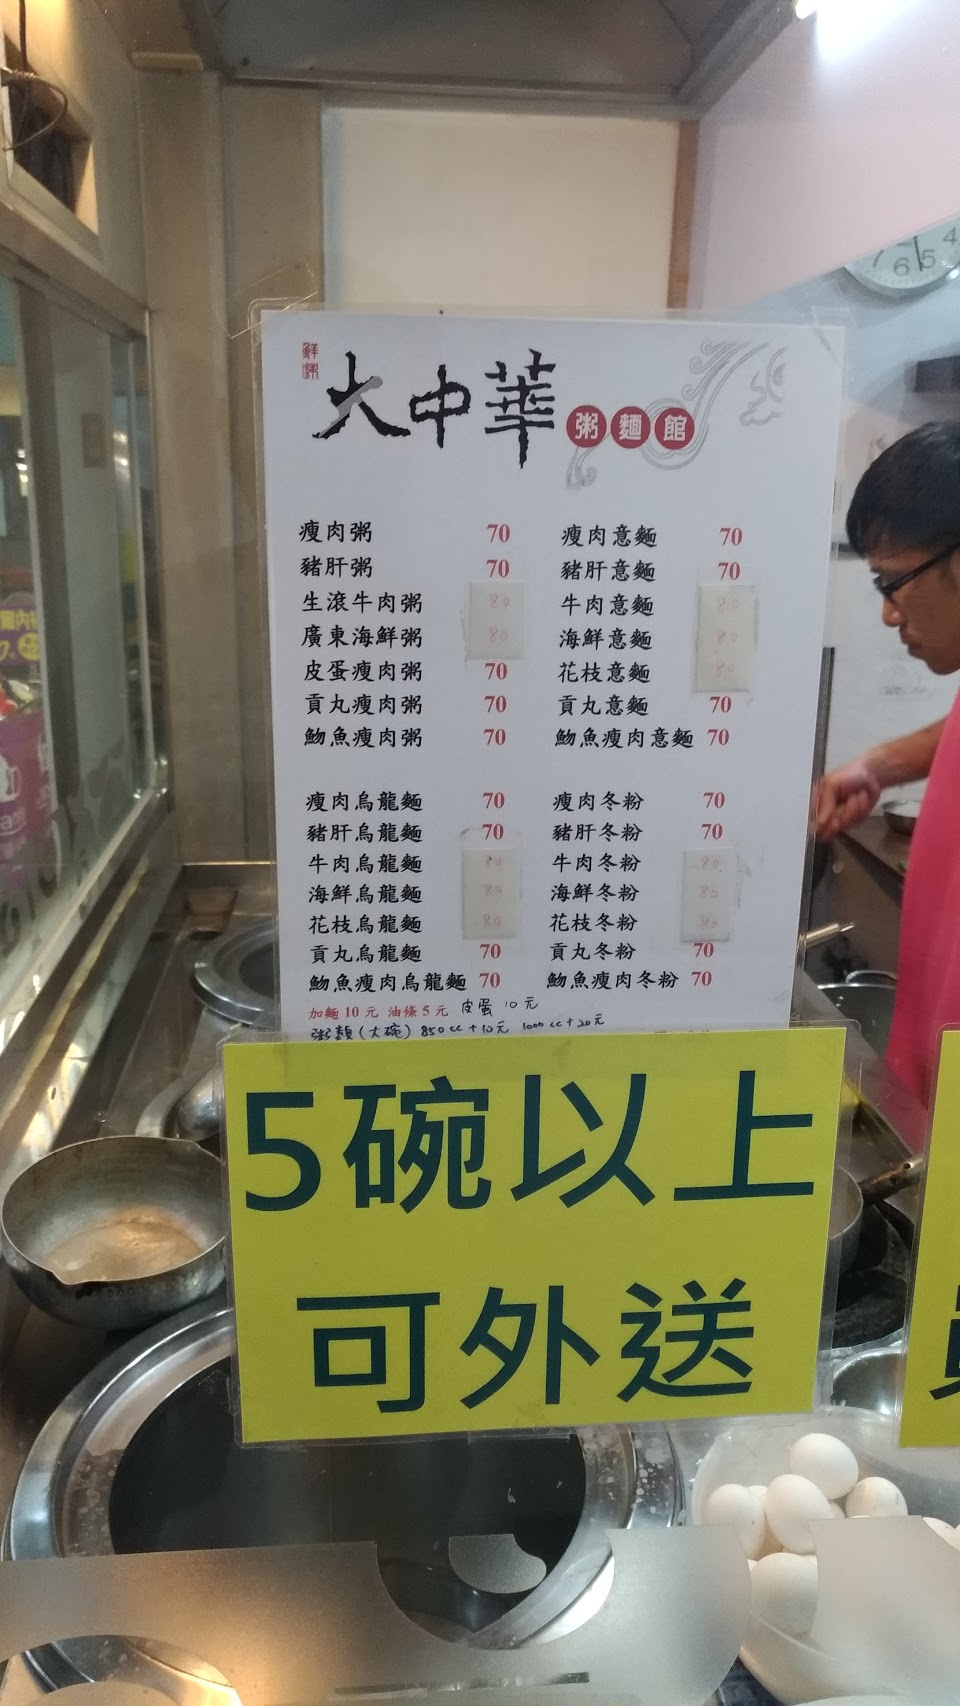 鮮味
大中華 粥麵館
瘦肉粥 70
豬肝粥 70
生滾牛肉粥 80
廣東海鮮粥 80
皮蛋瘦肉粥 70
貢丸瘦肉粥 70
魩魚瘦肉粥 70
瘦肉意麵 70
豬肝意麵 70
牛肉意麵 80
海鮮意麵 80
花枝意麵 80
貢丸意麵 70
魩魚瘦肉意麵 70
瘦肉烏龍麵 70
豬肝烏龍麵 70
牛肉烏龍麵 80
海鮮烏龍麵 80
花枝烏龍麵 80
貢丸烏龍麵 70
魩魚瘦肉烏龍麵 70
瘦肉冬粉 70
豬肝冬粉 70
牛肉冬粉 80
海鮮冬粉 80
花枝冬粉 80
貢丸冬粉 70
魩魚瘦肉冬粉 70
加麵10元 油條5元 皮蛋 10元
粥類(大碗) 850cc+10元 1000cc+20元
5碗以上
可外送
4
5
6
7